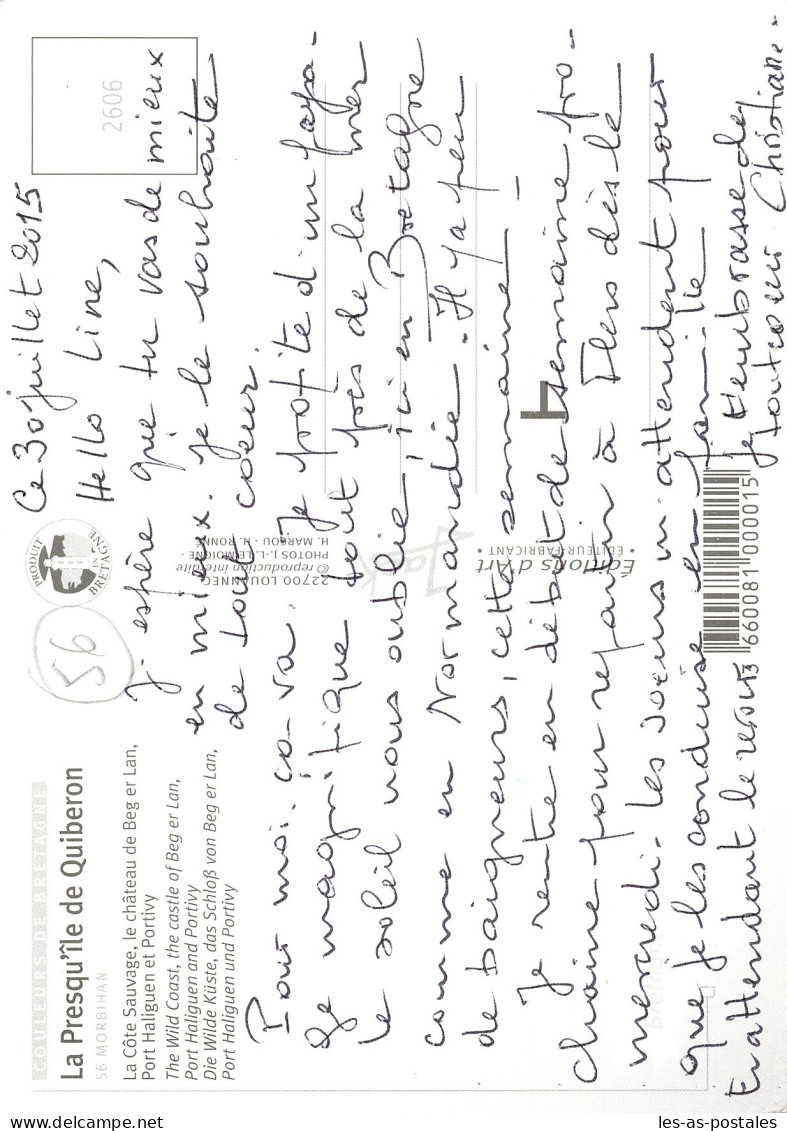 COULEURS DE BRETAGNE
La Presqu'île de Quiberon
56 MORBIHAN
La Côte Sauvage, le château de Beg er Lan,
Port Haliguen et Portivy
The Wild Coast, the castle of Beg er Lan,
Port Haliguen and Portivy
Die Wilde Küste, das Schloß von Beg er Lan,
Port Haliguen und Portivy
56
PRODUIT EN BRETAGNE
2606
22700 LOUANNEC
© reproduction interdite
PHOTOS J.-L. LE MOIGNE -
H. MARGOU - H. RONNÉ
Jack
Editions d'Art
• ÉDITEUR-FABRICANT •
3 660081 000015
Ce 30 juillet 2015
Hello Line,
J'espère que tu vas de mieux
en mieux. Je le souhaite
de tout coeur.
Pour moi, ça va. Je profite d'un paysa-
ge magnifique tout près de la mer
le soleil nous oublie, ici en Bretagne
comme en Normandie. Il y a peu
de baigneurs, cette semaine -
Je rentre en début de semaine pro-
chaine pour repartir à Flers dès le
mercredi. les soeurs m'attendent pour
que je les conduise en famille
En attendant le revoir je t'embrasse de
tout coeur Christiane -
les-as-postales